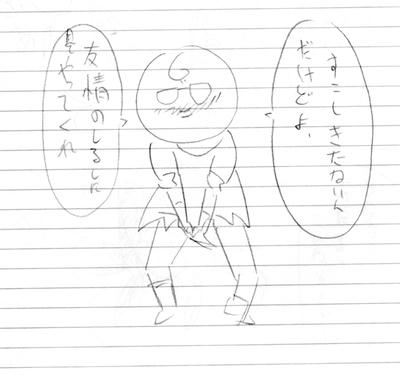 すこしきたないん
だけどよ、
友情のしるしに
見やってくれ